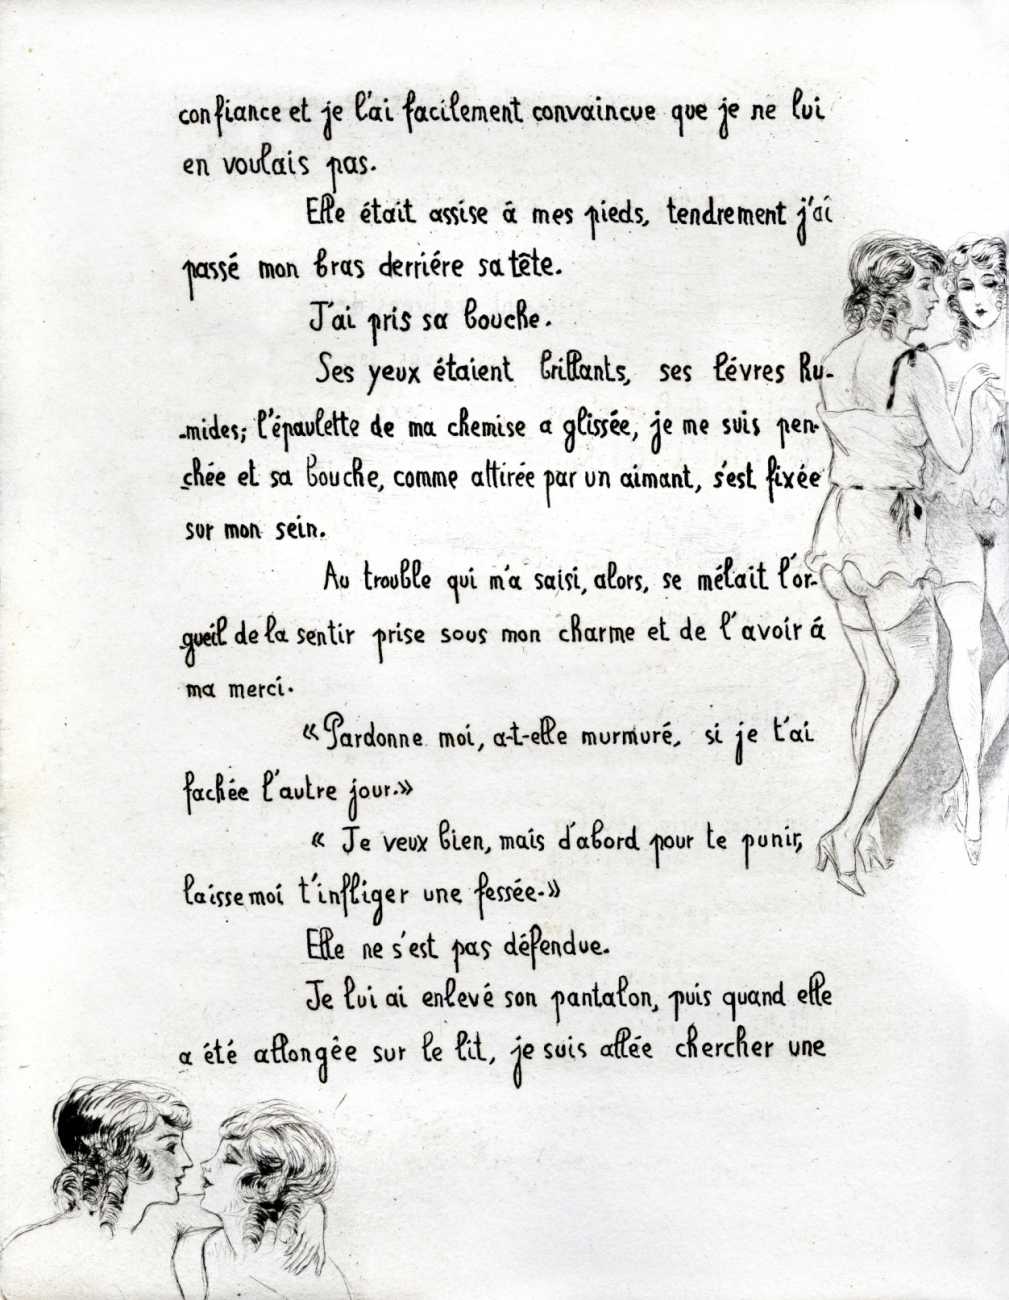 confiance et je l'ai facilement convaincue que je ne lui
en voulais pas.
Elle était assise á mes pieds, tendrement j'ai
passé mon bras derriére sa tête.
J'ai pris sa bouche.
Ses yeux étaient brillants, ses lévres hu-
-mides; l'épaulette de ma chemise a glissée, je me suis pen-
chée et sa bouche, comme attirée par un aimant, s'est fixée
sur mon sein.
Au trouble qui m'a saisi, alors, se mélait l'or-
gueil de la sentir prise sous mon charme et de l'avoir á
ma merci.
«Pardonne moi, a-t-elle murmuré, si je t'ai
fachée l'autre jour.»
« Je veux bien, mais d'abord pour te punir,
laisse moi t'infliger une fessée.»
Elle ne s'est pas défendue.
Je lui ai enlevé son pantalon, puis quand elle
a été allongêe sur le lit, je suis allée chercher une